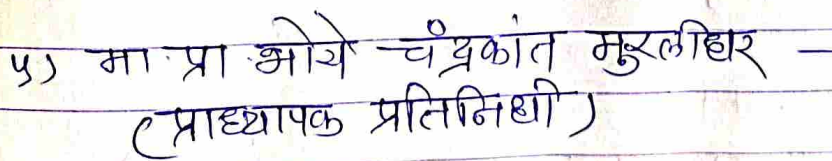 ५) मा. प्रा. भोये चंद्रकांत मुरलीधर -
(प्राध्यापक प्रतिनिधी)